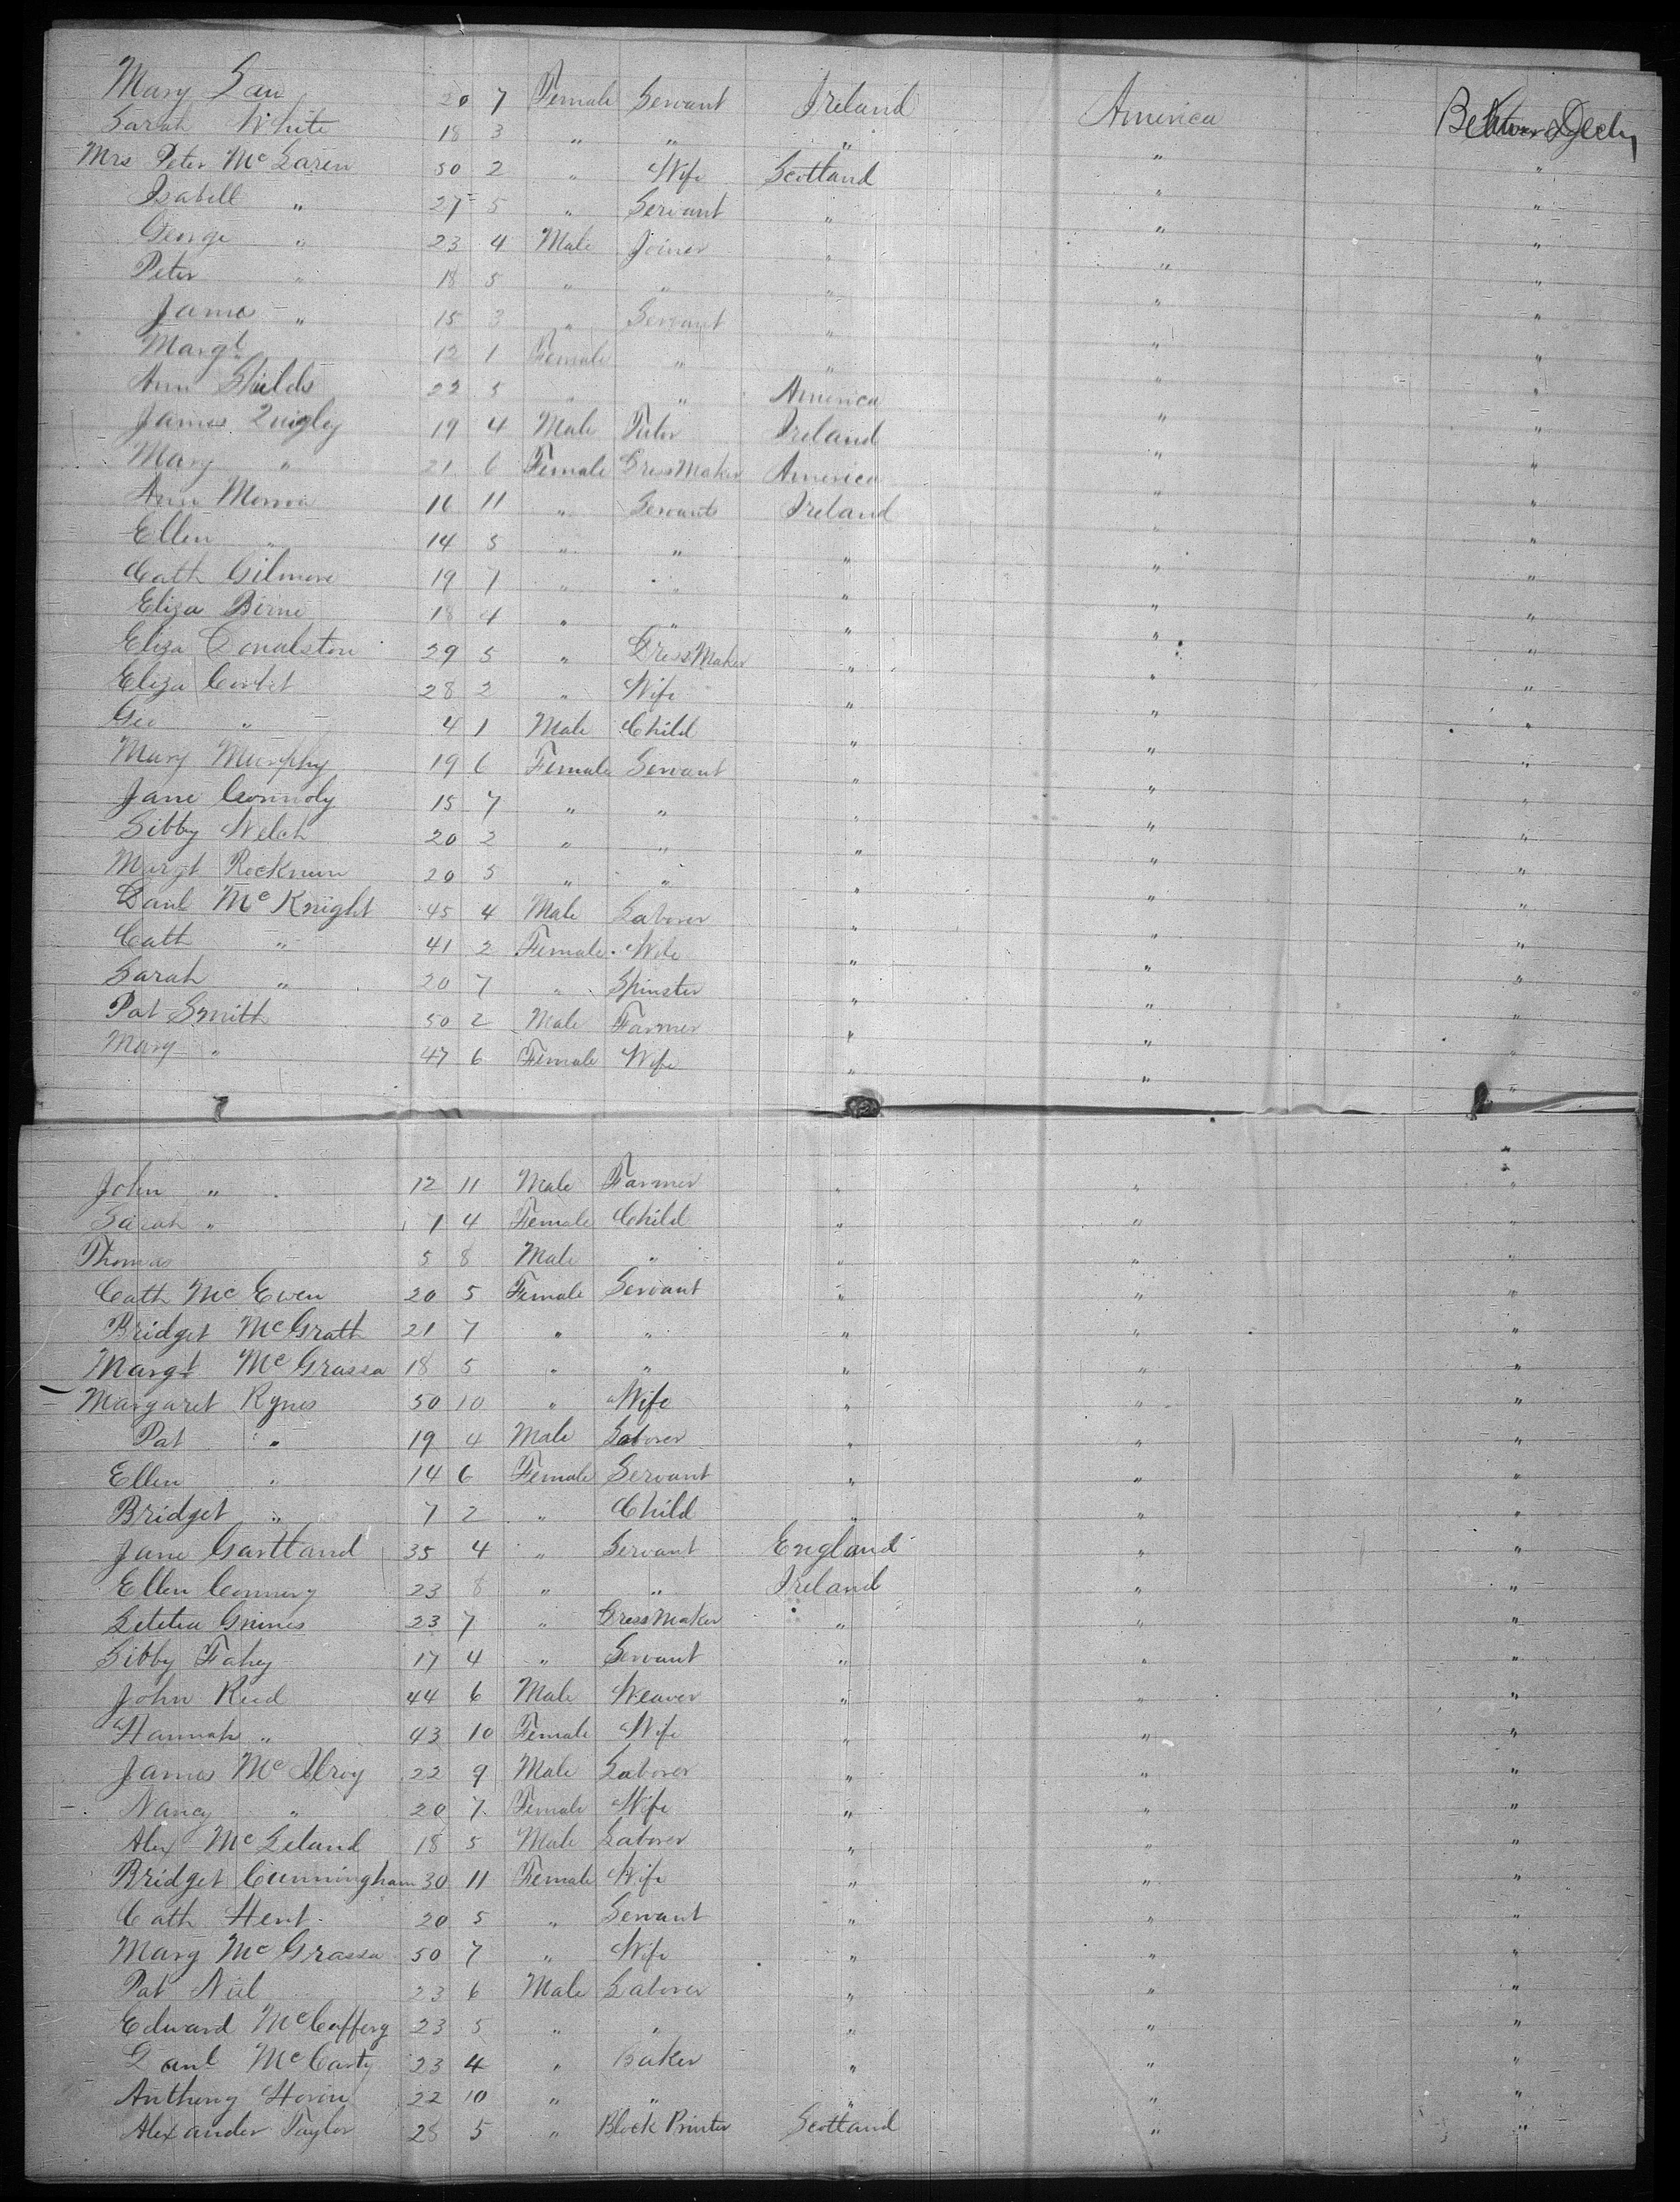 Mary Lau 20 7 Female Servant Ireland America Between Decks
Sarah White 18 3 " " " " "
Mrs Peter McLaren 50 2 " Wife Scotland " "
Isabell " 27 5 " Servant " " "
George " 23 4 Male Joiner " " "
Peter " 18 5 " " " " "
James " 15 3 " Servant " " "
Margt " 12 1 Female " " " "
Ann Shields 22 5 " " America " "
James Quigley 19 4 Male Ireland " "
Mary " 21 6 Female Dress Maker America " "
Ann 16 11 " Servant Ireland " "
Ellen " 14 5 " " " " "
Cath Gilmore 19 7 " " " " "
Eliza Birne 18 4 " " " " "
Eliza Donalston 29 5 " Dress Maker " " "
Eliza Corbet 28 2 " Wife " " "
Geo " 4 1 Male Child " " "
Mary Murphy 19 6 Female Servant " " "
Jane Connoly 15 7 " " " " "
Sibby Welch 20 2 " " " " "
Margt 20 5 " " " " "
Danl McKnight 45 4 Male Laborer " " "
Cath " 41 2 Female Wife " " "
Sarah " 20 7 " Spinster " " "
Pat Smith 50 2 Male Farmer " " "
Mary " 47 6 Female Wife " " "
John " 12 11 Male Farmer " " "
Sarah " 1 4 Female Child " " "
Thomas 5 8 Male " " " "
Cath McEwen 20 5 Female Servant " " "
Bridget McGrath 21 7 " " " " "
Margt McGrassa 18 5 " " " " "
Margaret Rynes 50 10 " Wife " " "
Pat " 19 4 Male Laborer " " "
Ellen " 14 6 Female Servant " " "
Bridget " 7 2 " Child " " "
Jane Gartland 35 4 " Servant England " "
Ellen Connery 23 8 " " Ireland " "
Letitia Grimes 23 7 " Dress Maker " " "
Sibby Fahey 17 4 " Servant " " "
John Reid 44 6 Male Weaver " " "
Hannah " 43 10 Female Wife " " "
James McIlroy 22 9 Male Laborer " " "
Nancy " 20 7 Female Wife " " "
Alex McLeland 18 5 Male Laborer " " "
Bridget Cunningham 30 11 Female Wife " " "
Cath Hent 20 5 " Servant " " "
Mary McGrassa 50 7 " Wife " " "
Pat Neil 23 6 Male Laborer " " "
Edward McCafferg 23 5 " " " " "
Danl McCarty 23 4 " Baker " " "
Anthony Horin 22 10 " " " " "
Alexander Taylor 25 5 " Block Printer Scotland " "